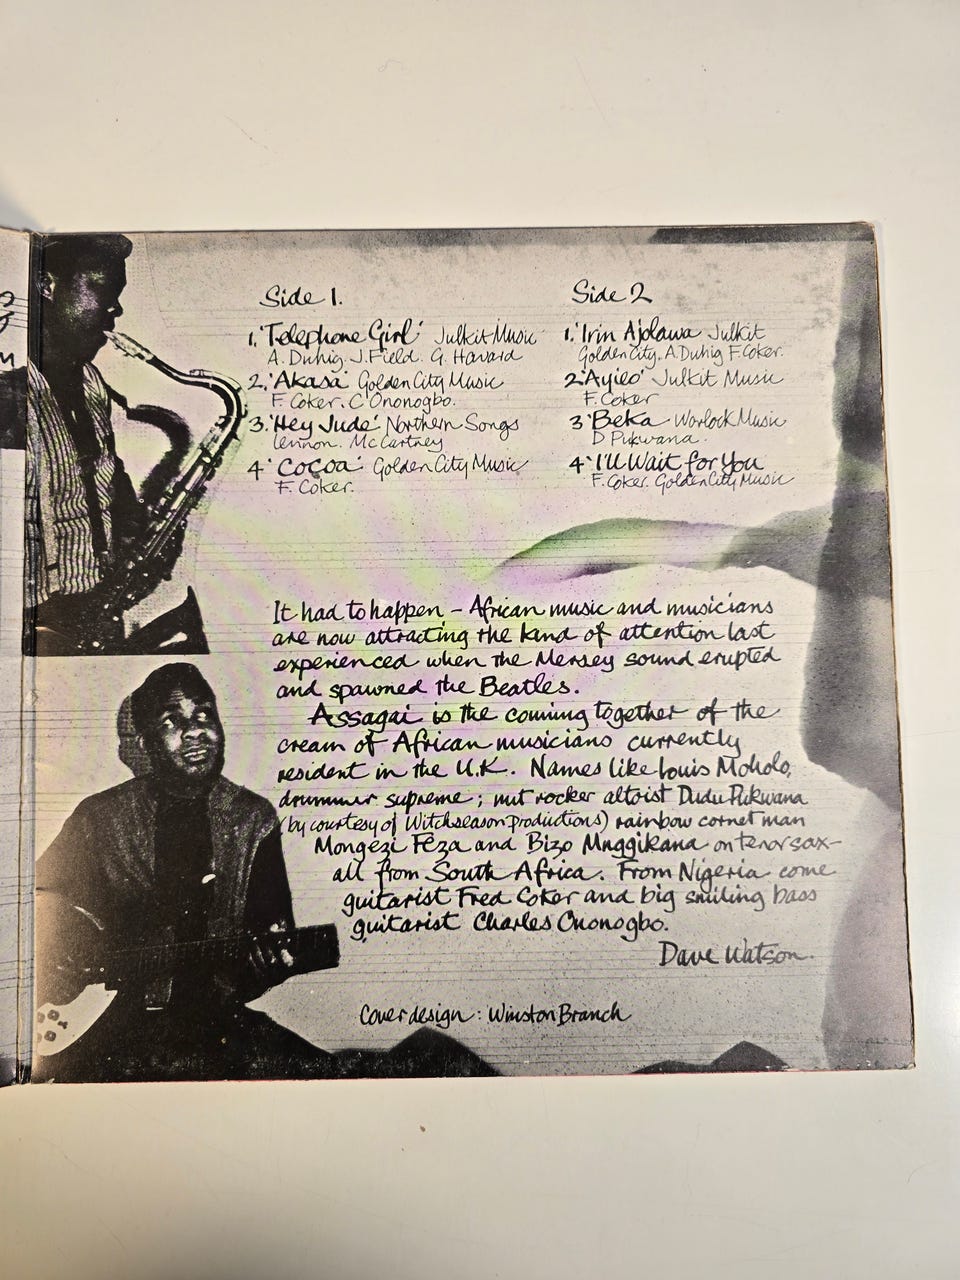 Side 1.
1. 'Telephone Girl' Julkit Music
A. Duhig. J. Field. G. Havard
2. 'Akasa' Golden City Music
F. Coker. C Ononogbo.
3. 'Hey Jude' Northern Songs
Lennon. McCartney
4 'Cocoa' Golden City Music
F. Coker.
Side 2
1. 'Irin Ajolawa Julkit
Golden City. A. Duhig F. Coker.
2 'Ayieo' Julkit Music
F. Coker
3 'Beka Warlock Music
D Pukwana.
4 'I'll Wait for You
F. Coker. Golden City Music
It had to happen – African music and musicians
are now attracting the kind of attention last
experienced when the Mersey sound erupted
and spawned the Beatles.
Assagai is the coming together of the
cream of African musicians currently
resident in the U.K. Names like Louis Moholo,
drummer supreme; nut rocker altoist Dudu Pukwana
(by courtesy of Witchseason Productions) rainbow cornet man
Mongezi Feza and Bizo Mnggikana on tenor sax–
all from South Africa. From Nigeria come
guitarist Fred Coker and big smiling bass
guitarist Charles Ononogbo.
Dave Watson.
Cover design : Winston Branch